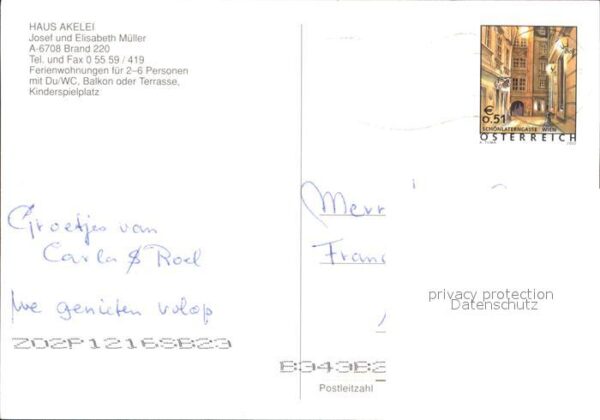 HAUS AKELEI
Josef und Elisabeth Müller
A-6708 Brand 220
Tel. und Fax 0 55 59 / 419
Ferienwohnungen für 2–6 Personen
mit Du/WC, Balkon oder Terrasse,
Kinderspielplatz
€
0.51
SCHÖNLATERNGASSE WIEN
ÖSTERREICH
Groetjes van
Carla & Roel
we genieten volop
Merr
Franc
privacy protection
Datenschutz
ZO2P1216SB23
B343B2
Postleitzahl